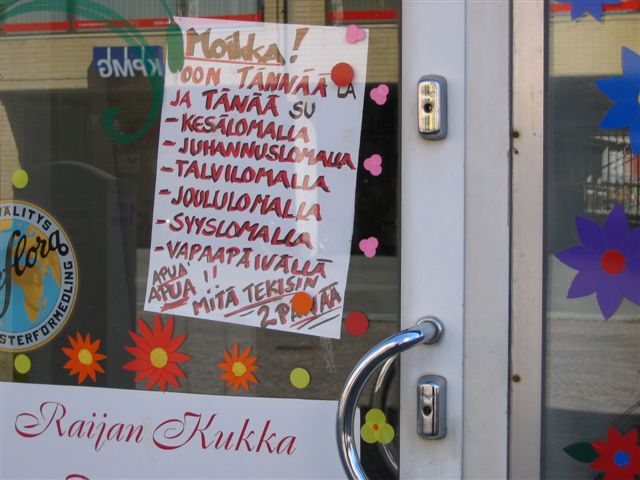 Moikka!
OON TÄNNÄÄ LA
JA TÄNÄÄ SU
- KESÄLOMALLA
- JUHANNUSLOMALLA
- TALVILOMALLA
- JOULULOMALLA
- SYYSLOMALLA
- VAPAAPÄIVÄLLÄ
APUA
APUA!!
MITÄ TEKISIN
2 PÄIVÄÄ
KPMG
flora
Raijan Kukka